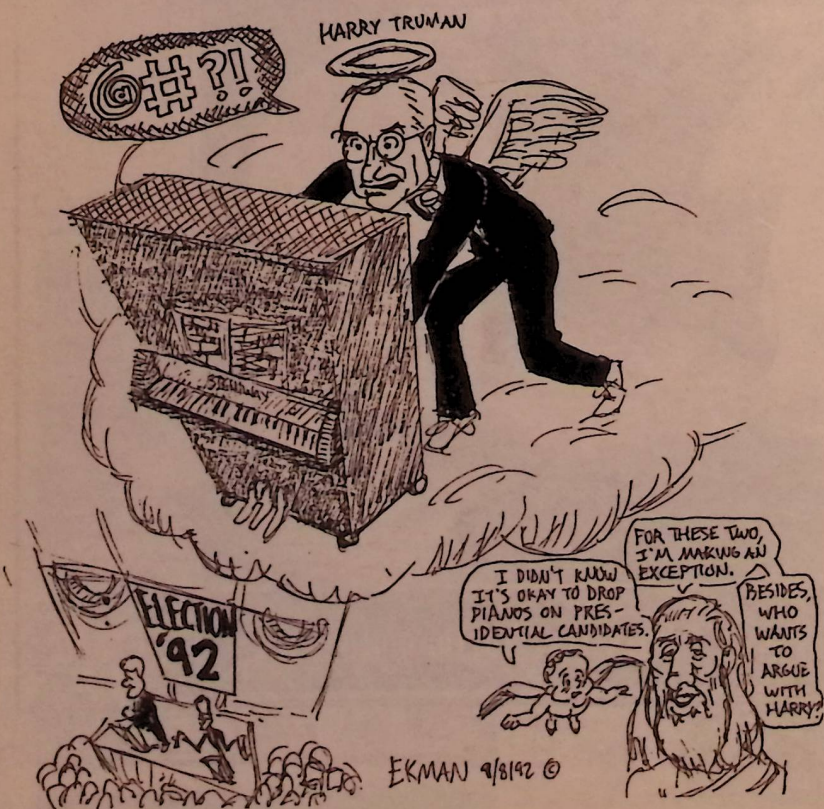 HARRY TRUMAN
@#?!
STEINWAY
ELECTION
'92
I DIDN'T KNOW
IT'S OKAY TO DROP
PIANOS ON PRES-
IDENTIAL CANDIDATES.
FOR THESE TWO,
I'M MAKING AN
EXCEPTION.
BESIDES,
WHO
WANTS
TO
ARGUE
WITH
HARRY?
EKMAN 9/8/92 ©